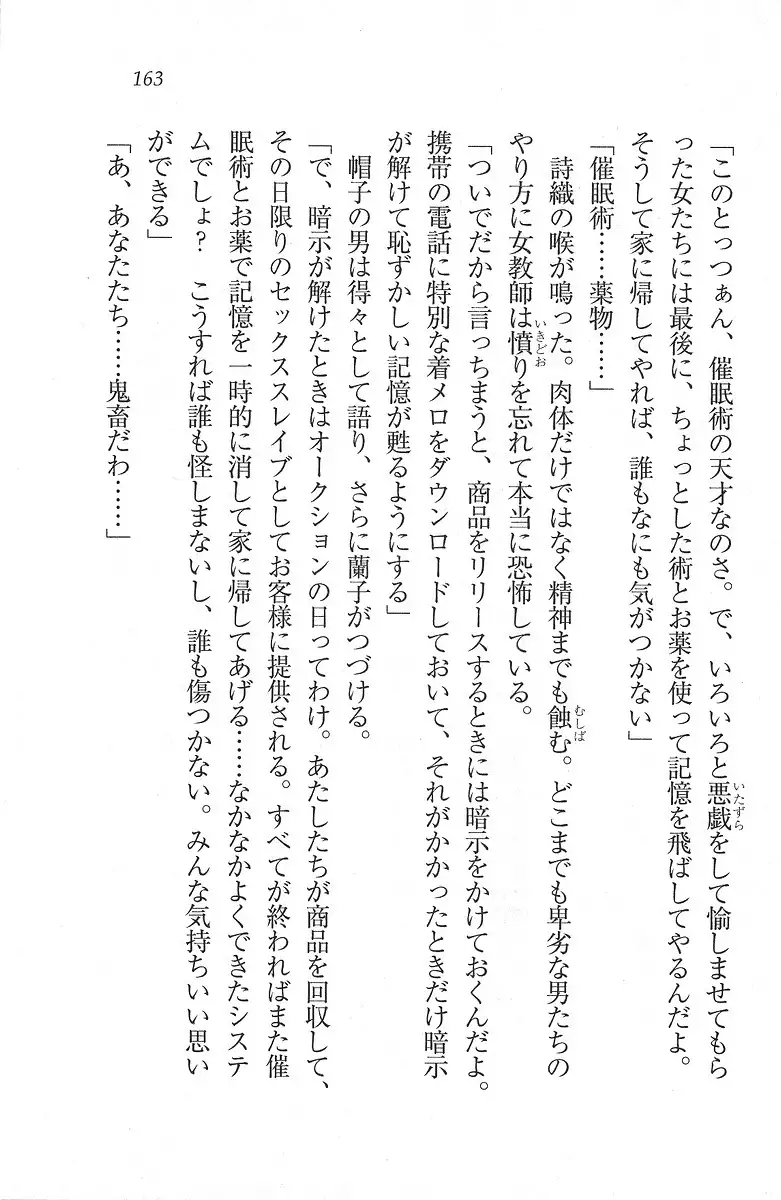 163
「このとっつぁん、催眠術の天才なのさ。で、いろいろと悪戯をして愉しませてもら
いたずら
った女たちには最後に、ちょっとした術とお薬を使って記憶を飛ばしてやるんだよ。
そうして家に帰してやれば、誰もなにも気がつかない」
「催眠術……薬物……」
　詩織の喉が鳴った。肉体だけではなく精神までも蝕む。どこまでも卑劣な男たちの
むしば
やり方に女教師は憤りを忘れて本当に恐怖している。
いきどお
「ついでだから言っちまうと、商品をリリースするときには暗示をかけておくんだよ。
携帯の電話に特別な着メロをダウンロードしておいて、それがかかったときだけ暗示
が解けて恥ずかしい記憶が甦るようにする」
　帽子の男は得々として語り、さらに蘭子がつづける。
「で、暗示が解けたときはオークションの日ってわけ。あたしたちが商品を回収して、
その日限りのセックススレイブとしてお客様に提供される。すべてが終わればまた催
眠術とお薬で記憶を一時的に消して家に帰してあげる……なかなかよくできたシステ
ムでしょ？　こうすれば誰も怪しまないし、誰も傷つかない。みんな気持ちいい思い
ができる」
「あ、あなたたち……鬼畜だわ……」